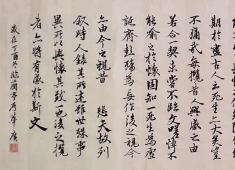 期於盡古人云死生亦大矣豈
不痛哉每攬昔人興感之由
若合一契未嘗不臨文嗟悼不
能喻之於懷固知一死生為虛
誕齊彭殤為妄作後之視今
亦由今之視昔 悲夫故列
敘時人錄其所述雖世殊事
異所以興懷其致一也後之攬
者亦將有感於斯文
歲在丁酉冬臨蘭亭序